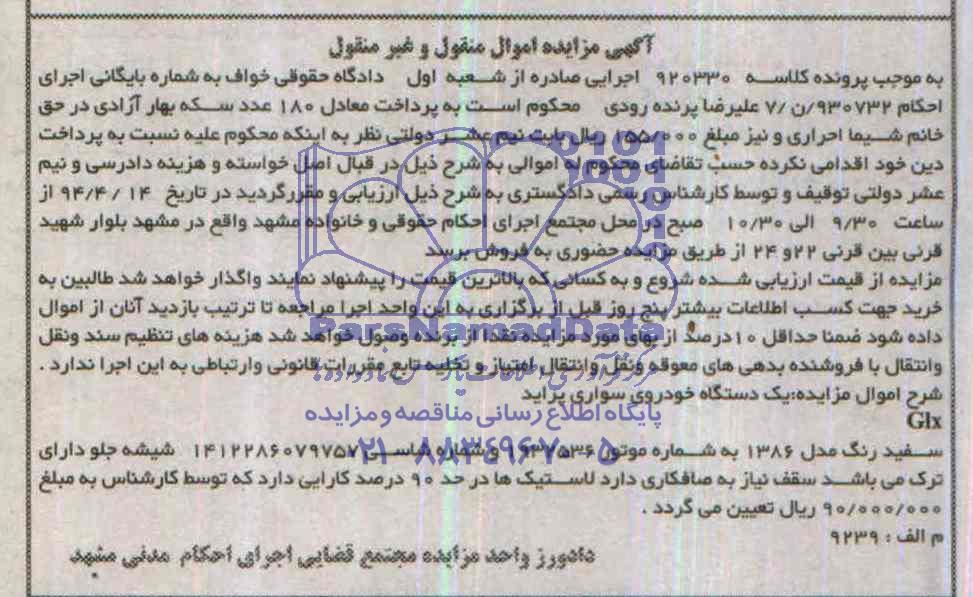 آگهی مزایده اموال منقول و غیر منقول
به موجب پرونده کلاسه ۹۲۰۳۳۰ اجرایی صادره از شعبه اول دادگاه حقوقی خواف به شماره بایگانی اجرای
احکام ۹۳۰۷۳۲/ن/۷ علیرضا پرنده رودی محکوم است به پرداخت معادل ۱۸۰ عدد سکه بهار آزادی در حق
خانم شیما احراری و نیز مبلغ ۱۵۵/۰۰۰ ریال بابت نیم عشر دولتی نظر به اینکه محکوم علیه نسبت به پرداخت
دین خود اقدامی نکرده حسب تقاضای محکوم له اموالی به شرح ذیل در قبال اصل خواسته و هزینه دادرسی و نیم
عشر دولتی توقیف و توسط کارشناس رسمی دادگستری به شرح ذیل ارزیابی و مقررگردید در تاریخ ۹۴/۴/۱۴ از
ساعت ۹/۳۰ الی ۱۰/۳۰ صبح در محل مجتمع اجرای احکام حقوقی و خانواده مشهد واقع در مشهد بلوار شهید
قرنی بین قرنی ۲۲و ۲۴ از طریق مزایده حضوری به فروش برسد
مزایده از قیمت ارزیابی شده شروع و به کسانی که بالاترین قیمت را پیشنهاد نمایند واگذار خواهد شد طالبین به
خرید جهت کسب اطلاعات بیشتر پنج روز قبل از برگزاری به این واحد اجرا مراجعه تا ترتیب بازدید آنان از اموال
ParsNamadData
داده شود ضمنا حداقل ۱۰درصد از بهای مورد مزایده نقدا از برنده وصول خواهد شد هزینه های تنظیم سند ونقل
وانتقال با فروشنده بدهی های معوقه ونقل وانتقال امتیاز و تخلیه تابع مقررات قانونی وارتباطی به این اجرا ندارد .
شرح اموال مزایده:یک دستگاه خودروی سواری پراید
پایگاه اطلاع رسانی مناقصه و مزایده
Glx
سفید رنگ مدل ۱۳۸۶ به شماره موتور ۱۹۳۷۵۳۶ و شماره شاسی ۱۴۱۲۲۸۶۰۷۹۷۵۷ شیشه جلو دارای
۰۲۱-۸۸۳۴۹۶۷۰-۵
ترک می باشد سقف نیاز به صافکاری دارد لاستیک ها در حد ۹۰ درصد کارایی دارد که توسط کارشناس به مبلغ
۹۰/۰۰۰/۰۰۰ ریال تعیین می گردد .
م الف : ۹۲۳۹
دادورز واحد مزایده مجتمع قضایی اجرای احکام مدنی مشهد